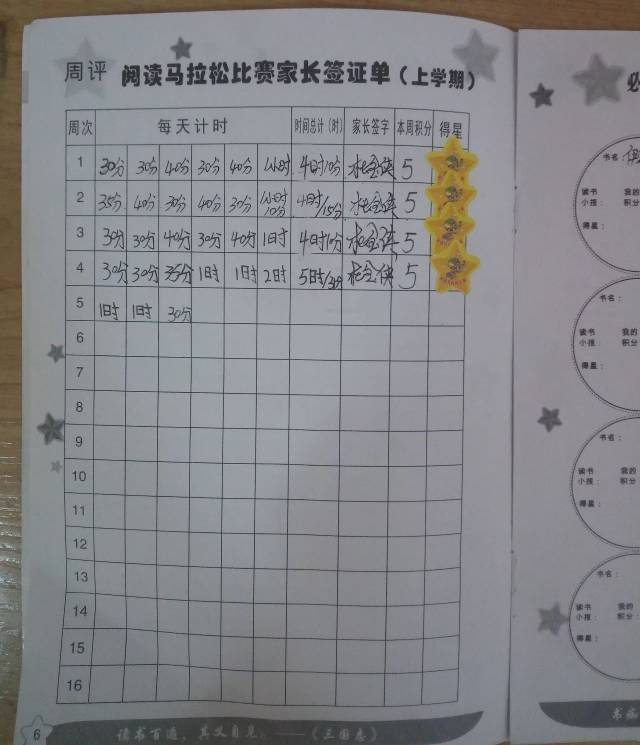 周评 阅读马拉松比赛家长签证单（上学期）
周次 每天计时 时间总计（时） 家长签字 本周积分 得星
1 30分 30分 40分 30分 40分 1小时 4时10分 5
2 35分 40分 30分 40分 30分 1小时10分 4时15分 5
3 30分 30分 40分 30分 40分 1时 4时10分 5
4 30分 30分 35分 1时 1时 2时 5时 5
5 1时 1时 30分
6
7
8
9
10
11
12
13
14
15
16
6 读书百遍，其义自见。——《三国志》
书名：
读书小报： 我的积分
得星：
书名：
读书小报： 我的积分
得星：
书名：
读书小报： 我的积分
得星：
书名：
读书小报： 我的积分：
得星：